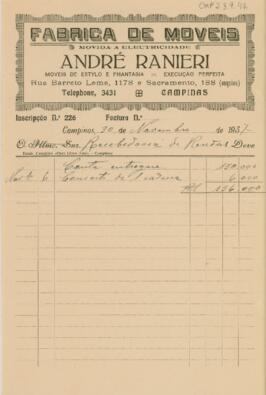 CMP2.3.9.42
FABRICA DE MOVEIS
MOVIDA A ELECTRICIDADE
ANDRÉ RANIERI
MOVEIS DE ESTYLO E PHANTASIA EXECUÇÃO PERFEITA
Rua Barreto Leme, 1178 e Sacramento, 188
Telephone, 3431 CAMPINAS
Inscripção N.º 226 Factura N.º
Campinas, 30 de Novembro de 1937
O Illmo. Snr. Recebedoria de Rendas Deve
Conta entregue 130,000
6 Concerto de cadeira 6,000
136,000